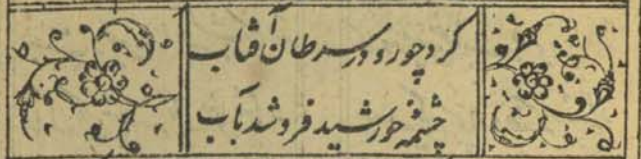 کرد چو رو در سرطان آفتاب
چشمهٔ خورشید فروشد بآب